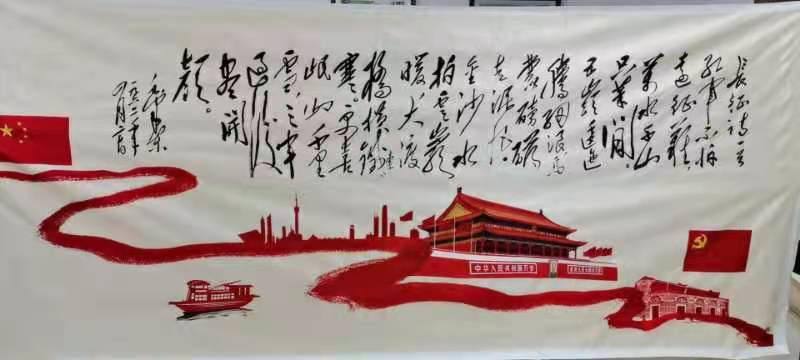 长征诗一首
红军不怕
远征难，
万水千山
只等闲。
五岭逶迤
腾细浪乌
蒙磅礴
走泥丸。
金沙水
拍云崖
暖大渡
橋横铁
索寒。更喜
岷山千里
雪三军
过后
尽開
颜。
毛泽东
中华人民共和国万岁